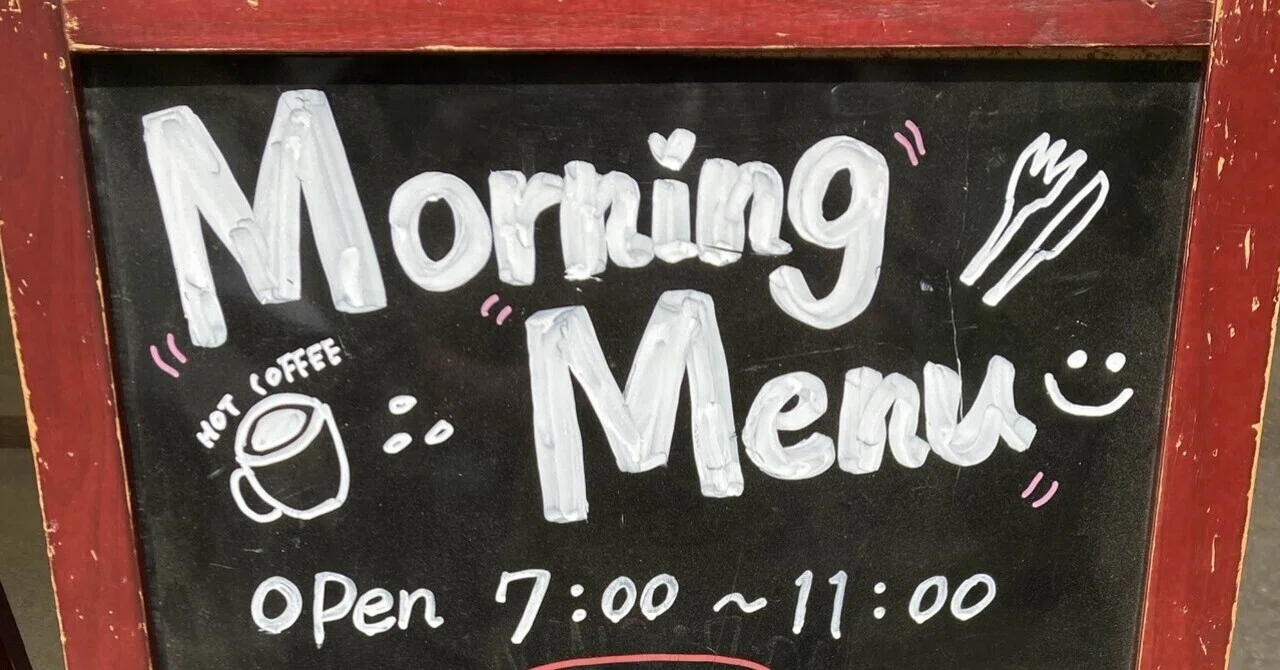 Morning
Menu
HOT COFFEE
OPen 7:00 ~ 11:00